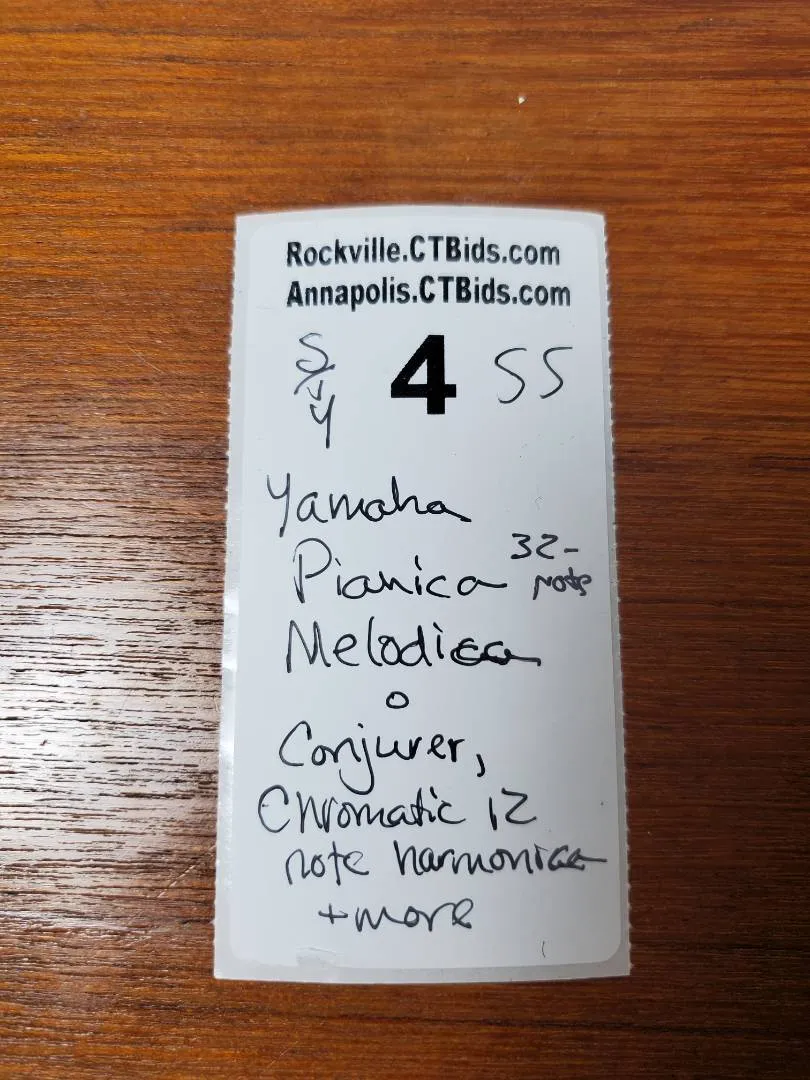 Rockville.CTBids.com
Annapolis.CTBids.com
4 55
Yamaha
Pianica 32-note
Melodica
Conjurer,
Chromatic 12
note harmonica
+ more